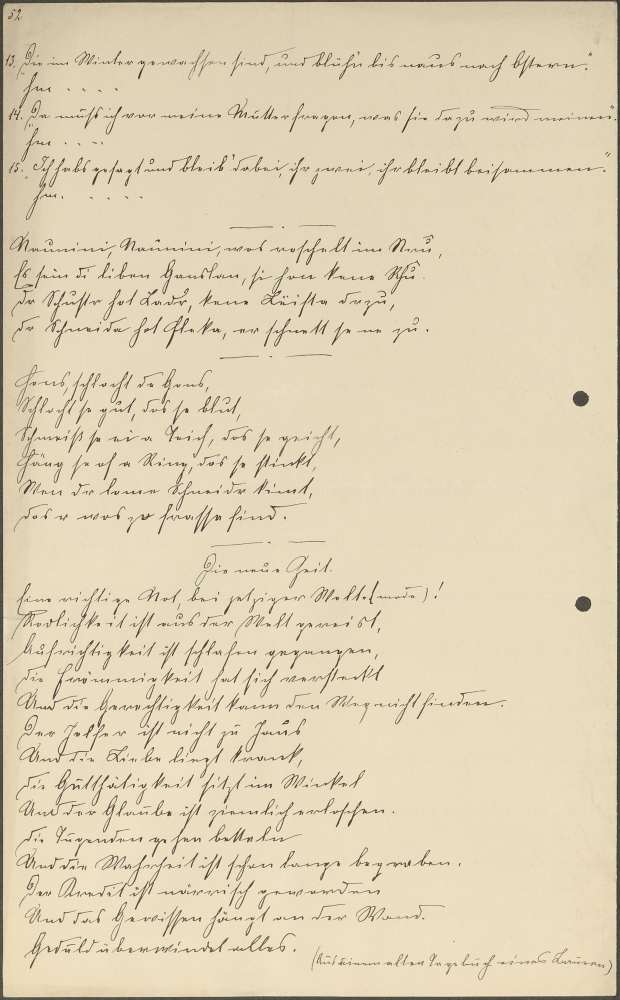 52
13. „Die im Winter gewachsen sind, und blüh'n bis naus nach Ostern."
Hm . . . .
14. „Da muß ich vor meine Mutter fragen, was sie dazu wird meinen."
Hm . . . .
15. „Ich habs gesagt und bleib dabei, ihr zwei, ihr bleibt beisammen."
Hm. . . . .
Naunini, Naunini, wos roschelt im Stru,
Es sein di liben Ganslan, si hon kene Schu.
Dr Schustr hot Ladr, kene Leista drzu,
dr Schneida hot Fleka, er schnett se ne zu.
Hons, schlacht de Gons,
Schlacht se gut, dos se blut,
Schmeiß se ei a Teich, dos se
Häng se of a Ring, dos se stinkt,
Wen dr lome Schneidr kimt,
dos r wos zo frassa find.
Die neue Zeit.
Eine richtige Not, bei jetziger Welt. (mode)!
Redlichkeit ist aus der Welt gereist,
Aufrichtigkeit ist schlafen gegangen,
die Frömmigkeit hat sich versteckt
Und die Gerechtigkeit kann den Weg nicht finden.
Der Helfer ist nicht zu Haus
Und die Liebe liegt krank,
die Gutthätigkeit sitzt im Winkel
Und der Glaube ist ziemlich erloschen.
die Tugenden gehen betteln
Und die Wahrheit ist schon lange begraben.
Der Kredit ist närrisch geworden
Und das Gewissen hängt an der Wand.
Geduld überwindet alles.
(Aus einem alten Tagebuch eines Bauern)